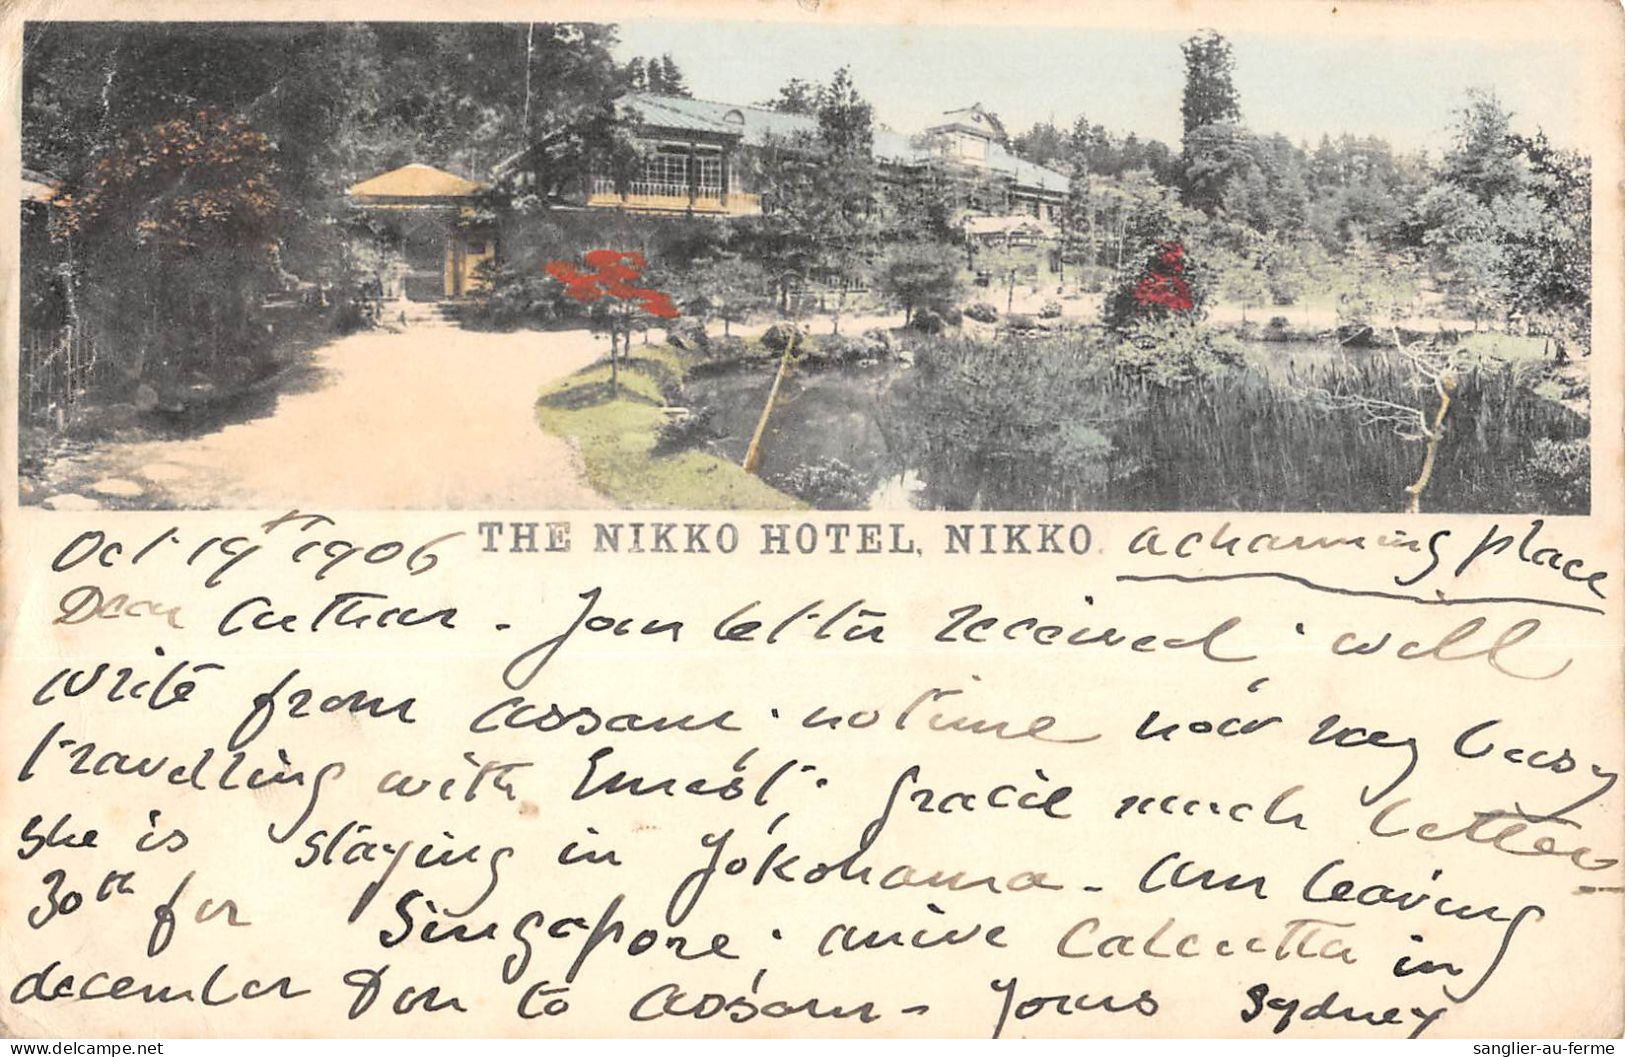 THE NIKKO HOTEL, NIKKO.
a charming place
Oct 19th 1906
Dear Arthur - Your letter received, will
write from Assam. no time now very busy
travelling with Ernest. Gracie much better
she is staying in Yokohama - Am leaving
30th for Singapore, arrive Calcutta in
december & on to Assam - Yours Sydney
sanglier-au-ferme